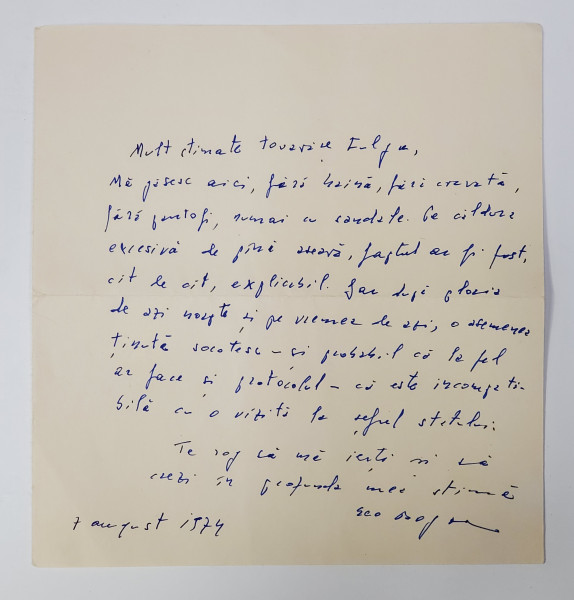 Mult stimate tovarășe Fulga,
Mă găsesc aici, fără haină, fără cravată,
fără pantofi, numai cu sandale. Pe căldura
excesivă de pînă aseară, faptul ar fi fost,
cît de cît, explicabil. Dar după ploaia
de azi noapte și pe vremea de azi, o asemenea
ținută socotesc – și probabil că la fel
ar face și protocolul – că este incompati-
bilă cu o vizită la șeful statului.
Te rog să mă ierți și să
crezi în profunda mea stimă
Geo Bogza
7 august 1974